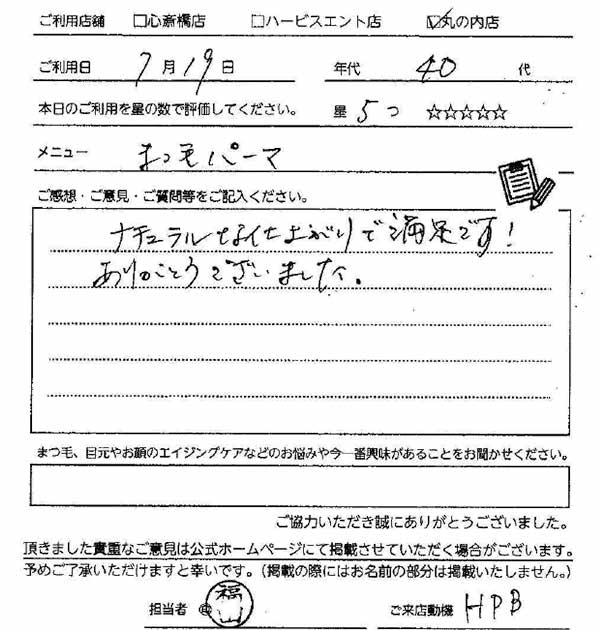 ご利用店舗 □心斎橋店 □ハービスエント店 ☑丸の内店
ご利用日 7月19日 年代 40 代
本日のご利用を星の数で評価してください。 星 5 つ ☆☆☆☆☆
メニュー まつ毛パーマ
ご感想・ご意見・ご質問等をご記入ください。
ナチュラルな仕上がりで満足です!
ありがとうございました。
まつ毛、目元やお顔のエイジングケアなどのお悩みや今一番興味があることをお聞かせください。
ご協力いただき誠にありがとうございました。
頂きました貴重なご意見は公式ホームページにて掲載させていただく場合がございます。
予めご了承いただけますと幸いです。(掲載の際にはお名前の部分は掲載いたしません。)
担当者 福山 ご来店動機 HPB